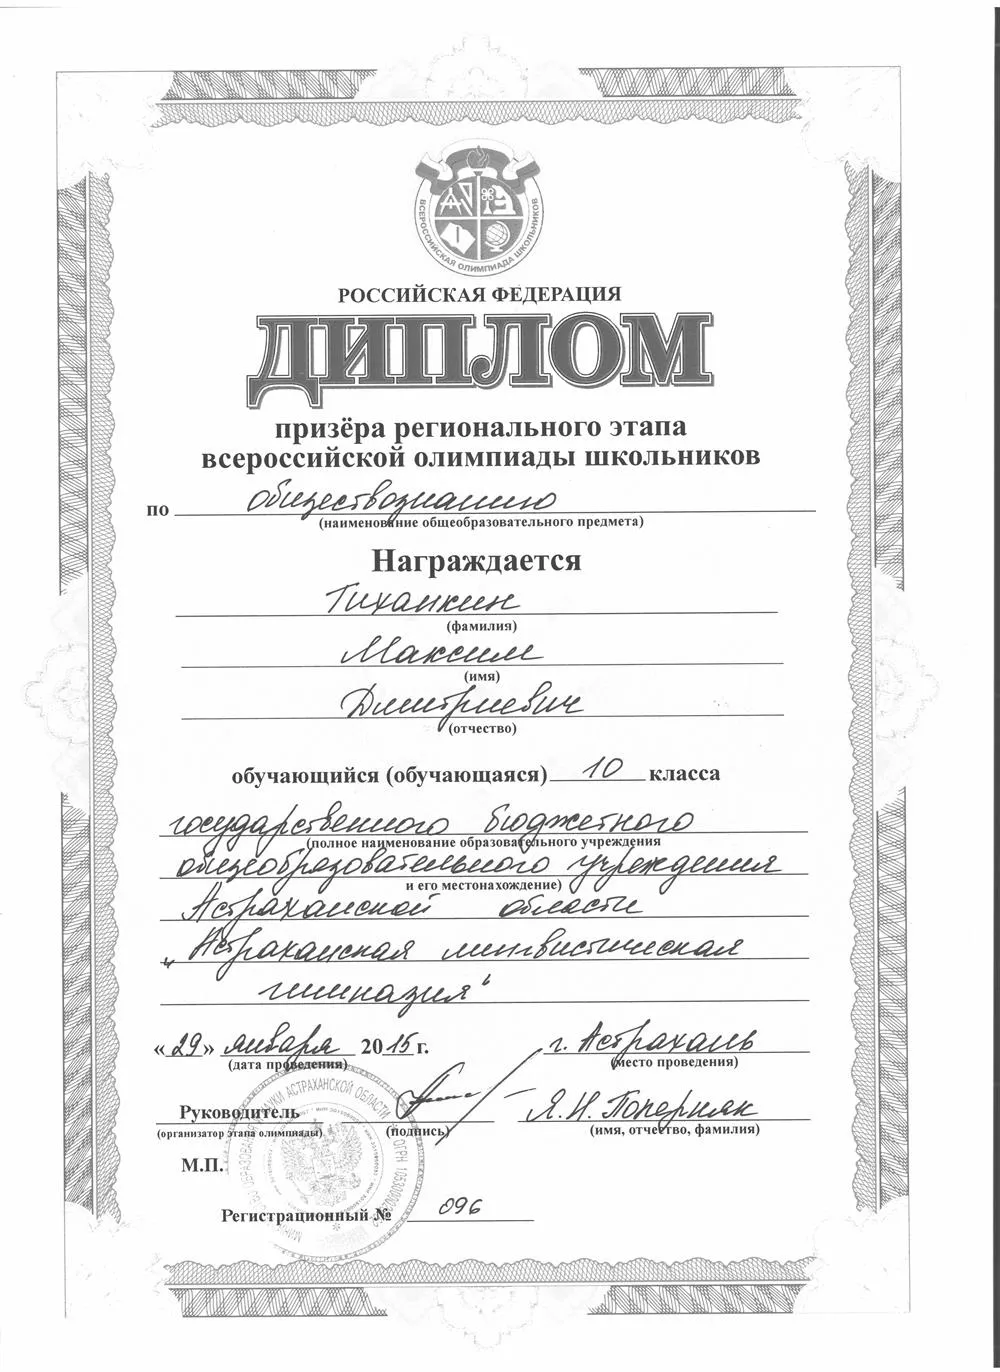 ВСЕРОССИЙСКАЯ ОЛИМПИАДА ШКОЛЬНИКОВ
РОССИЙСКАЯ ФЕДЕРАЦИЯ
ДИПЛОМ
призёра регионального этапа
всероссийской олимпиады школьников
по обществознанию
(наименование общеобразовательного предмета)
Награждается
Тиханкин
(фамилия)
Максим
(имя)
Дмитриевич
(отчество)
обучающийся (обучающаяся) 10 класса
государственного бюджетного
(полное наименование образовательного учреждения
общеобразовательного учреждения
и его местонахождение)
Астраханской области
„Астраханская лингвистическая
гимназия“
«29» января 2015 г. г. Астрахань
(дата проведения) (место проведения)
Руководитель Я.И. Поперняк
(организатор этапа олимпиады) (подпись) (имя, отчество, фамилия)
М.П.
Регистрационный № 096